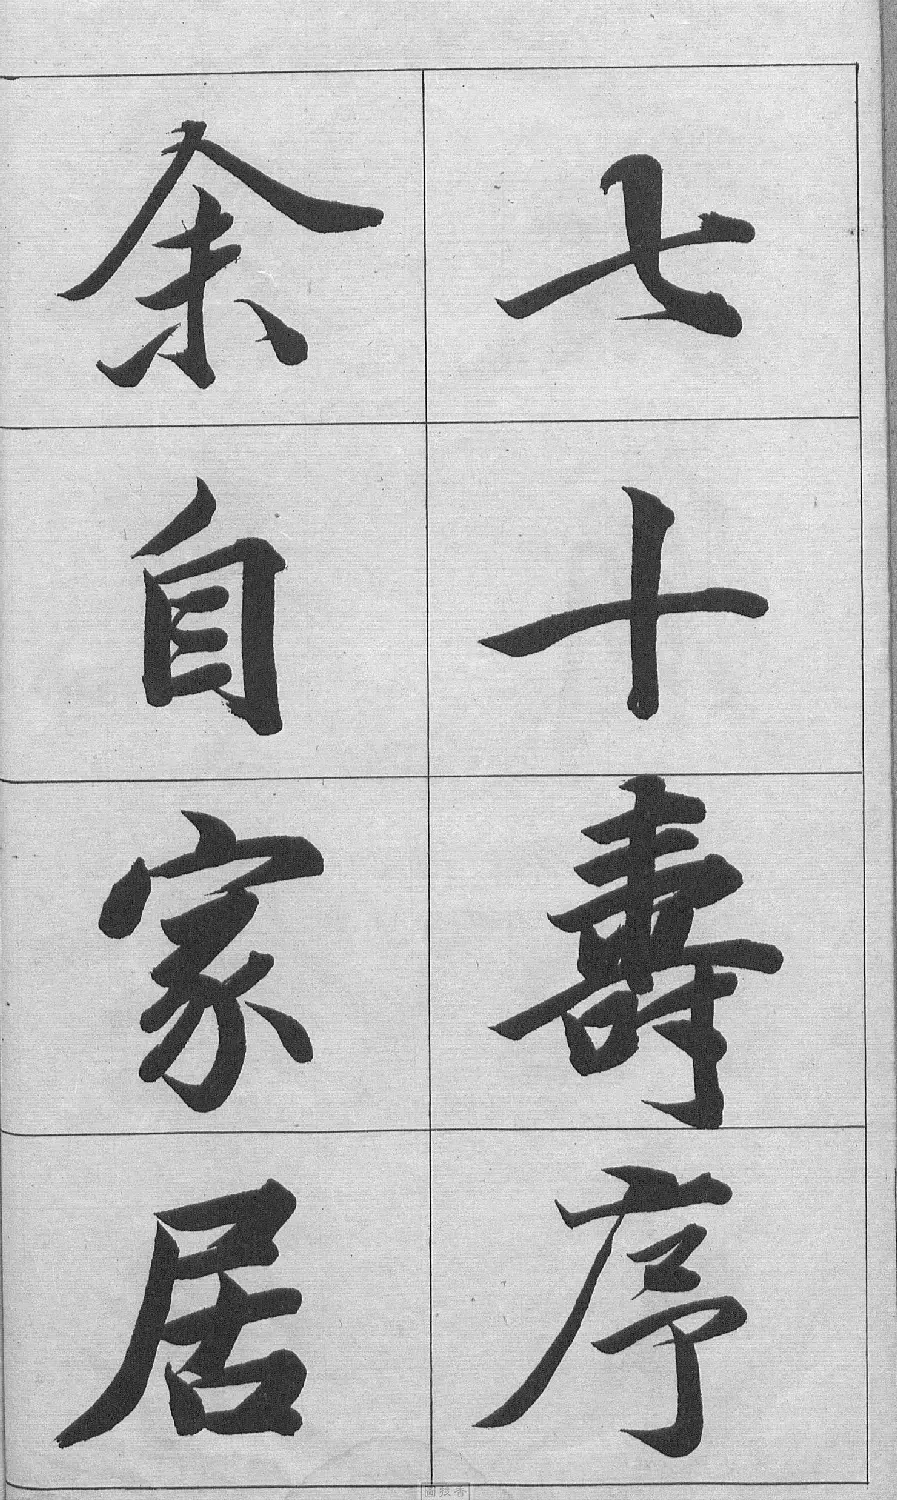 七十壽序
余自家居